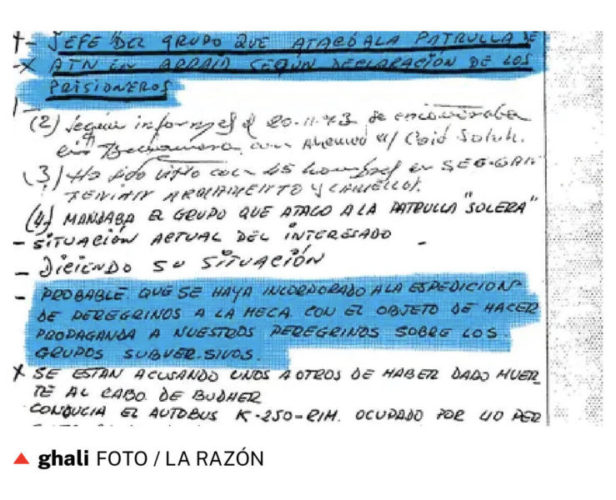 - JEFE DEL GRUPO QUE ATACÓ A LA PATRULLA DE
ATN EN ARRAID SEGÚN DECLARACIÓN DE LOS
PRISIONEROS
(2) Según informes el 20-11-73 se encontraba
en con Ahmed Caid Salah.
(3) Ha sido visto con 45 hombres en SEG-GAN
TENIAN ARMAMENTO Y CAMELLOS.
(4) MANDABA EL GRUPO QUE ATACO A LA PATRULLA "SOLERA"
- SITUACIÓN ACTUAL DEL INTERESADO -
- DICIENDO SU SITUACIÓN
- PROBABLE QUE SE HAYA INCORPORADO A LA ESPEDICION
DE PEREGRINOS A LA MECA CON EL OBJETO DE HACER
PROPAGANDA A NUESTROS PEREGRINOS SOBRE LOS
GRUPOS SUBVERSIVOS.
X SE ESTÁN ACUSANDO UNOS A OTROS DE HABER DADO MUER
TE AL CABO DE BUDHER
CONDUCIA EL AUTOBUS K-250-RIM. OCUPADO POR 40 PER
▲ ghali FOTO / LA RAZÓN